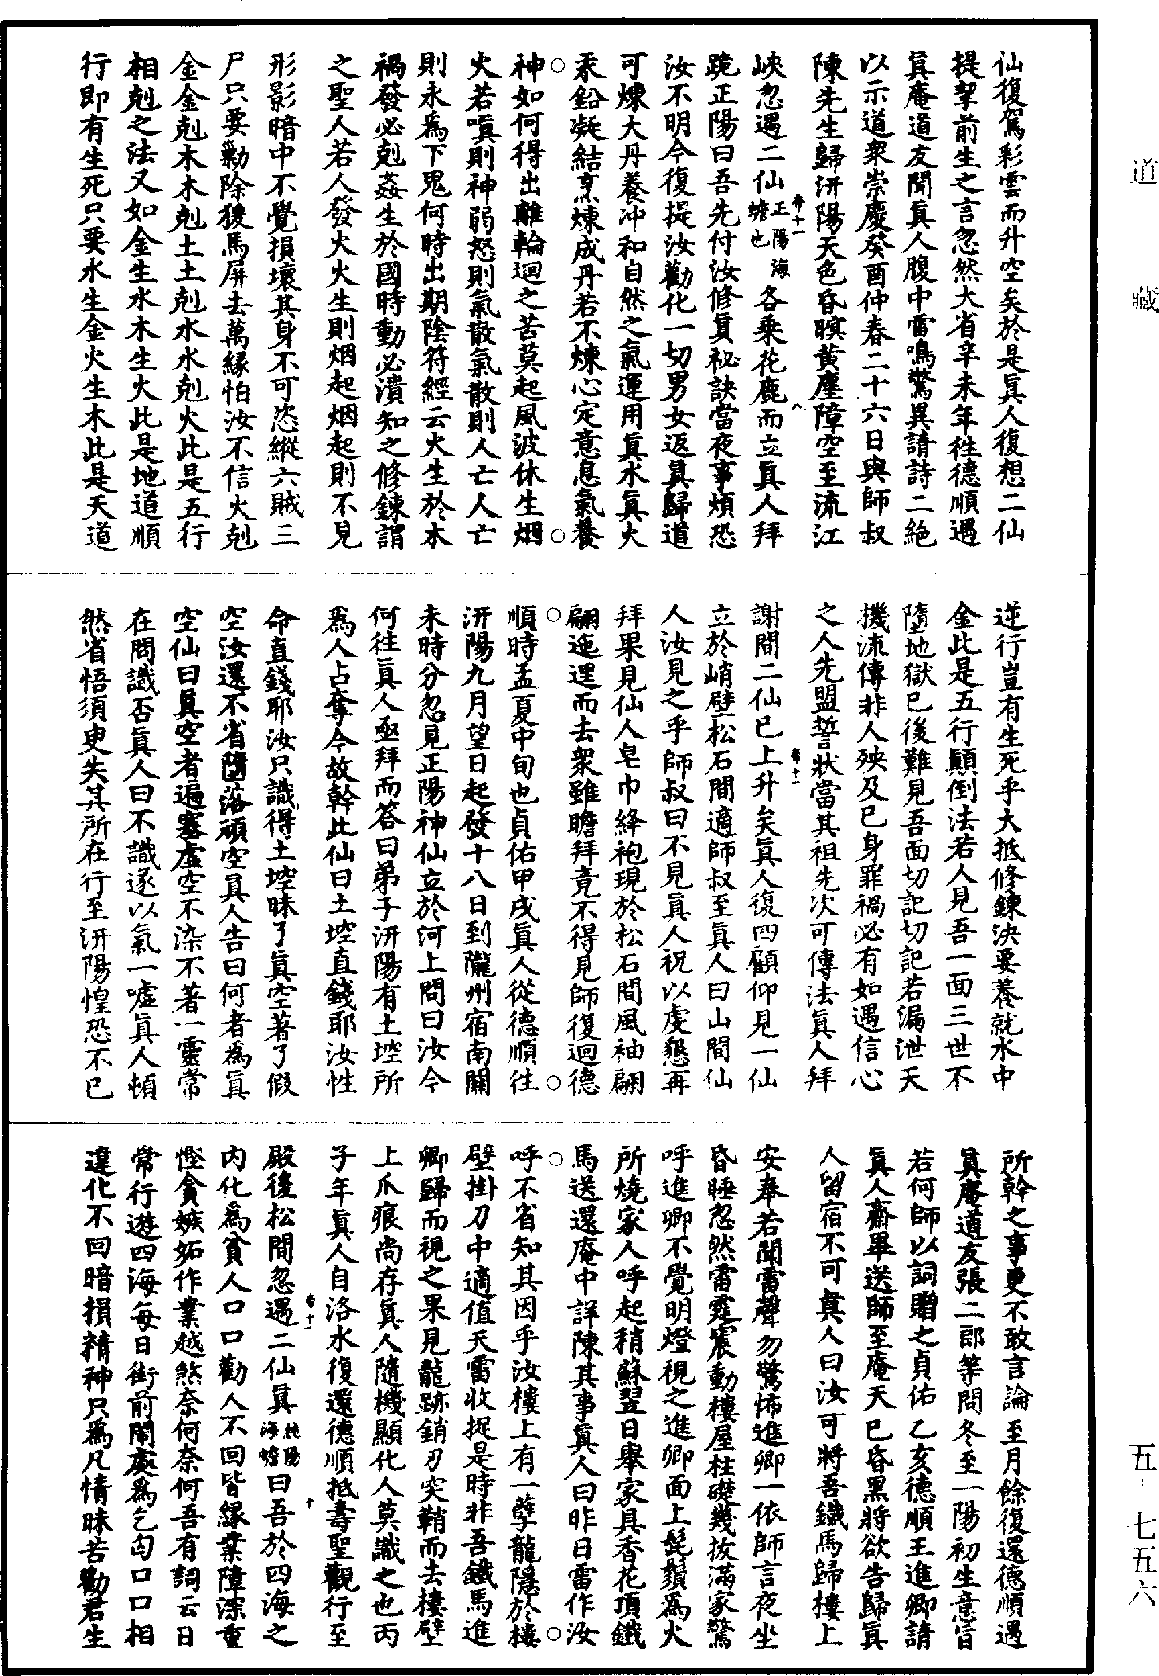 仙復駕彩雲而升空矣於是眞人復想二仙
提挈前生之言忽然大省辛未年徃德順遇
眞庵道友聞眞人腹中雷鳴驚異請詩二絶
以示道衆崇慶癸酉仲春二十六日與師叔
陳先生歸汧陽天色昏暝黄塵障空至流江
峽忽遇二仙正陽海蟾也各乘花鹿而立眞人拜
跪正陽曰吾先付汝修眞祕訣當夜事煩恐
汝不明今復提汝勸化一切男女返眞歸道
可煉大丹養沖和自然之氣運用眞水眞火
汞鉛凝結烹煉成丹若不煉心定意息氣養
神如何得出離輪迴之苦莫起風波休生烟
火若嗔則神弱怒則氣散氣散則人亡人亡
則永爲下鬼何時出期陰符經云火生於木
禍發必剋姦生於國時動必潰知之修鍊謂
之聖人若人發火火生則烟起烟起則不見
形影暗中不覺損壞其身不可恣縱六賊三
尸只要勦除猨馬屏去萬緣怕汝不信火剋
金金剋木木剋土土剋水水剋火此是五行
相剋之法又如金生水木生火此是地道順
行即有生死只要水生金火生木此是天道
逆行豈有生死乎大抵修鍊決要養就水中
金此是五行顚倒法若人見吾一面三世不
墮地獄已後難見吾面切記切記若漏泄天
機流傳非人殃及已身罪禍必有如遇信心
之人先盟誓狀當其祖先次可傳法眞人拜
謝間二仙已上升矣眞人復四顧仰見一仙
立於峭壁松石間適師叔至眞人曰山間仙
人汝見之乎師叔曰不見眞人祝以虔懇再
拜果見仙人皂巾絳袍現於松石間風袖翩
翩迤逕而去衆雖瞻拜竟不得見師復迴德
順時孟夏中旬也貞佑甲戌眞人從德順往
汧陽九月望日起發十八日到隴州宿南關
未時分忽見正陽神仙立於河上問曰汝今
何徃眞人亟拜而答曰弟子汧陽有土埪所
爲人占奪今故幹此仙曰土埪直錢耶汝性
命直錢耶汝只識得土埪昧了眞空著了假
空汝還不省隨落頑空眞人告曰何者為眞
空仙曰眞空者遍塞虛空不染不著一靈常
在問識否眞人曰不識遂以氣一噓眞人頓
然省悟須臾失其所在行至汧陽惶恐不已
所幹之事更不敢言論至月餘復還德順遇
眞庵道友張二郎等問冬至一陽初生意旨
若何師以詞贈之貞佑乙亥德順王進卿請
眞人齋畢送師至庵天已昏黑將欲告歸眞
人留宿不可眞人曰汝可將吾鐵馬歸樓上
安奉若聞雷聲勿驚怖進卿一依師言夜坐
昏睡忽然雷霆震動樓屋柱礎幾拔滿家驚
呼進卿不覺明燈視之進卿面上髭鬚爲火
所燒家人呼起稍蘇翌日舉家具香花頂鐵
馬送還庵中詳陳其事眞人曰昨日雷作汝
呼不省知其因乎汝樓上有一孽龍隱於樓
壁掛刀中適值天雷收捉是時非吾鐵馬進
卿歸而視之果見龍跡銷刃突鞘而去樓壁
上爪痕尚存眞人隨機顯化人莫識之也丙
子年眞人自洛水復還德順抵壽聖觀行至
殿後松間忽遇二仙眞純陽海蟾曰吾於四海之
内化爲貧人口口勸人不回皆緣業障深重
慳貪嫉妬作業越煞奈何奈何吾有詞云日
常行遊四海每日街前鬧處爲乞匃口口相
違化不回暗損精神只爲凡情昧苦勸君生
道藏
五·七五六